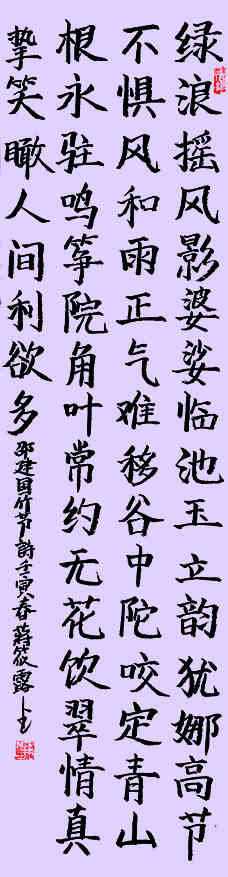 绿浪摇风影婆娑临池玉立韵犹娜高节
不惧风和雨正气难移谷中陀咬定青山
根永驻鸣筝院角叶常约无花饮翠情真
挚笑瞰人间利欲多
邵建国竹节詩壬寅春蒋筱露